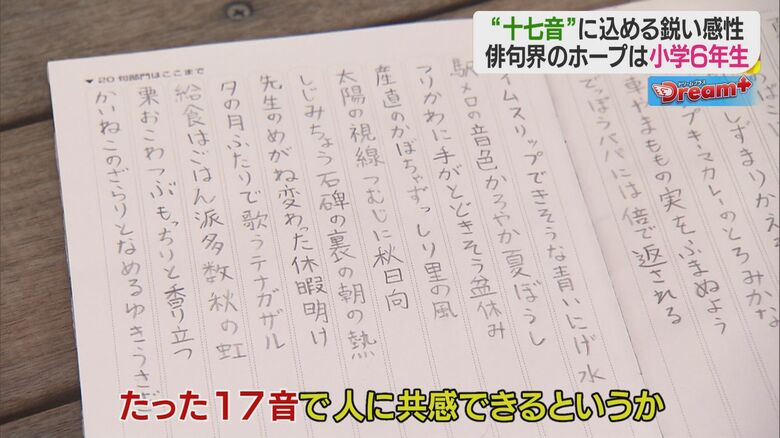 “十七音”に込める鋭い感性
俳句界のホープは小学6年生
ドリームプラス
Dream+
▼20句部門はここまで
しずまりかえ
プキーマカレーのとろみかな
車やまもの実をふまぬよう
でっぽうパパには倍で返される
イムスリップできそうな青いにげ水
駅メロの音色かろやか夏ぼうし
つりかわに手がとどきそう盆休み
産直のかぼちゃずっしり里の風
太陽の視線つむじに秋日向
しじみちょう石碑の裏の朝の熱
先生のめがね変わった休暇明け
夕の月ふたりで歌うテナガザル
給食はごはん派多数秋の虹
栗おこわつぶもっちりと香り立つ
かいねこのざらりとなめるゆきうさぎ
たった17音で 人に共感できるというか